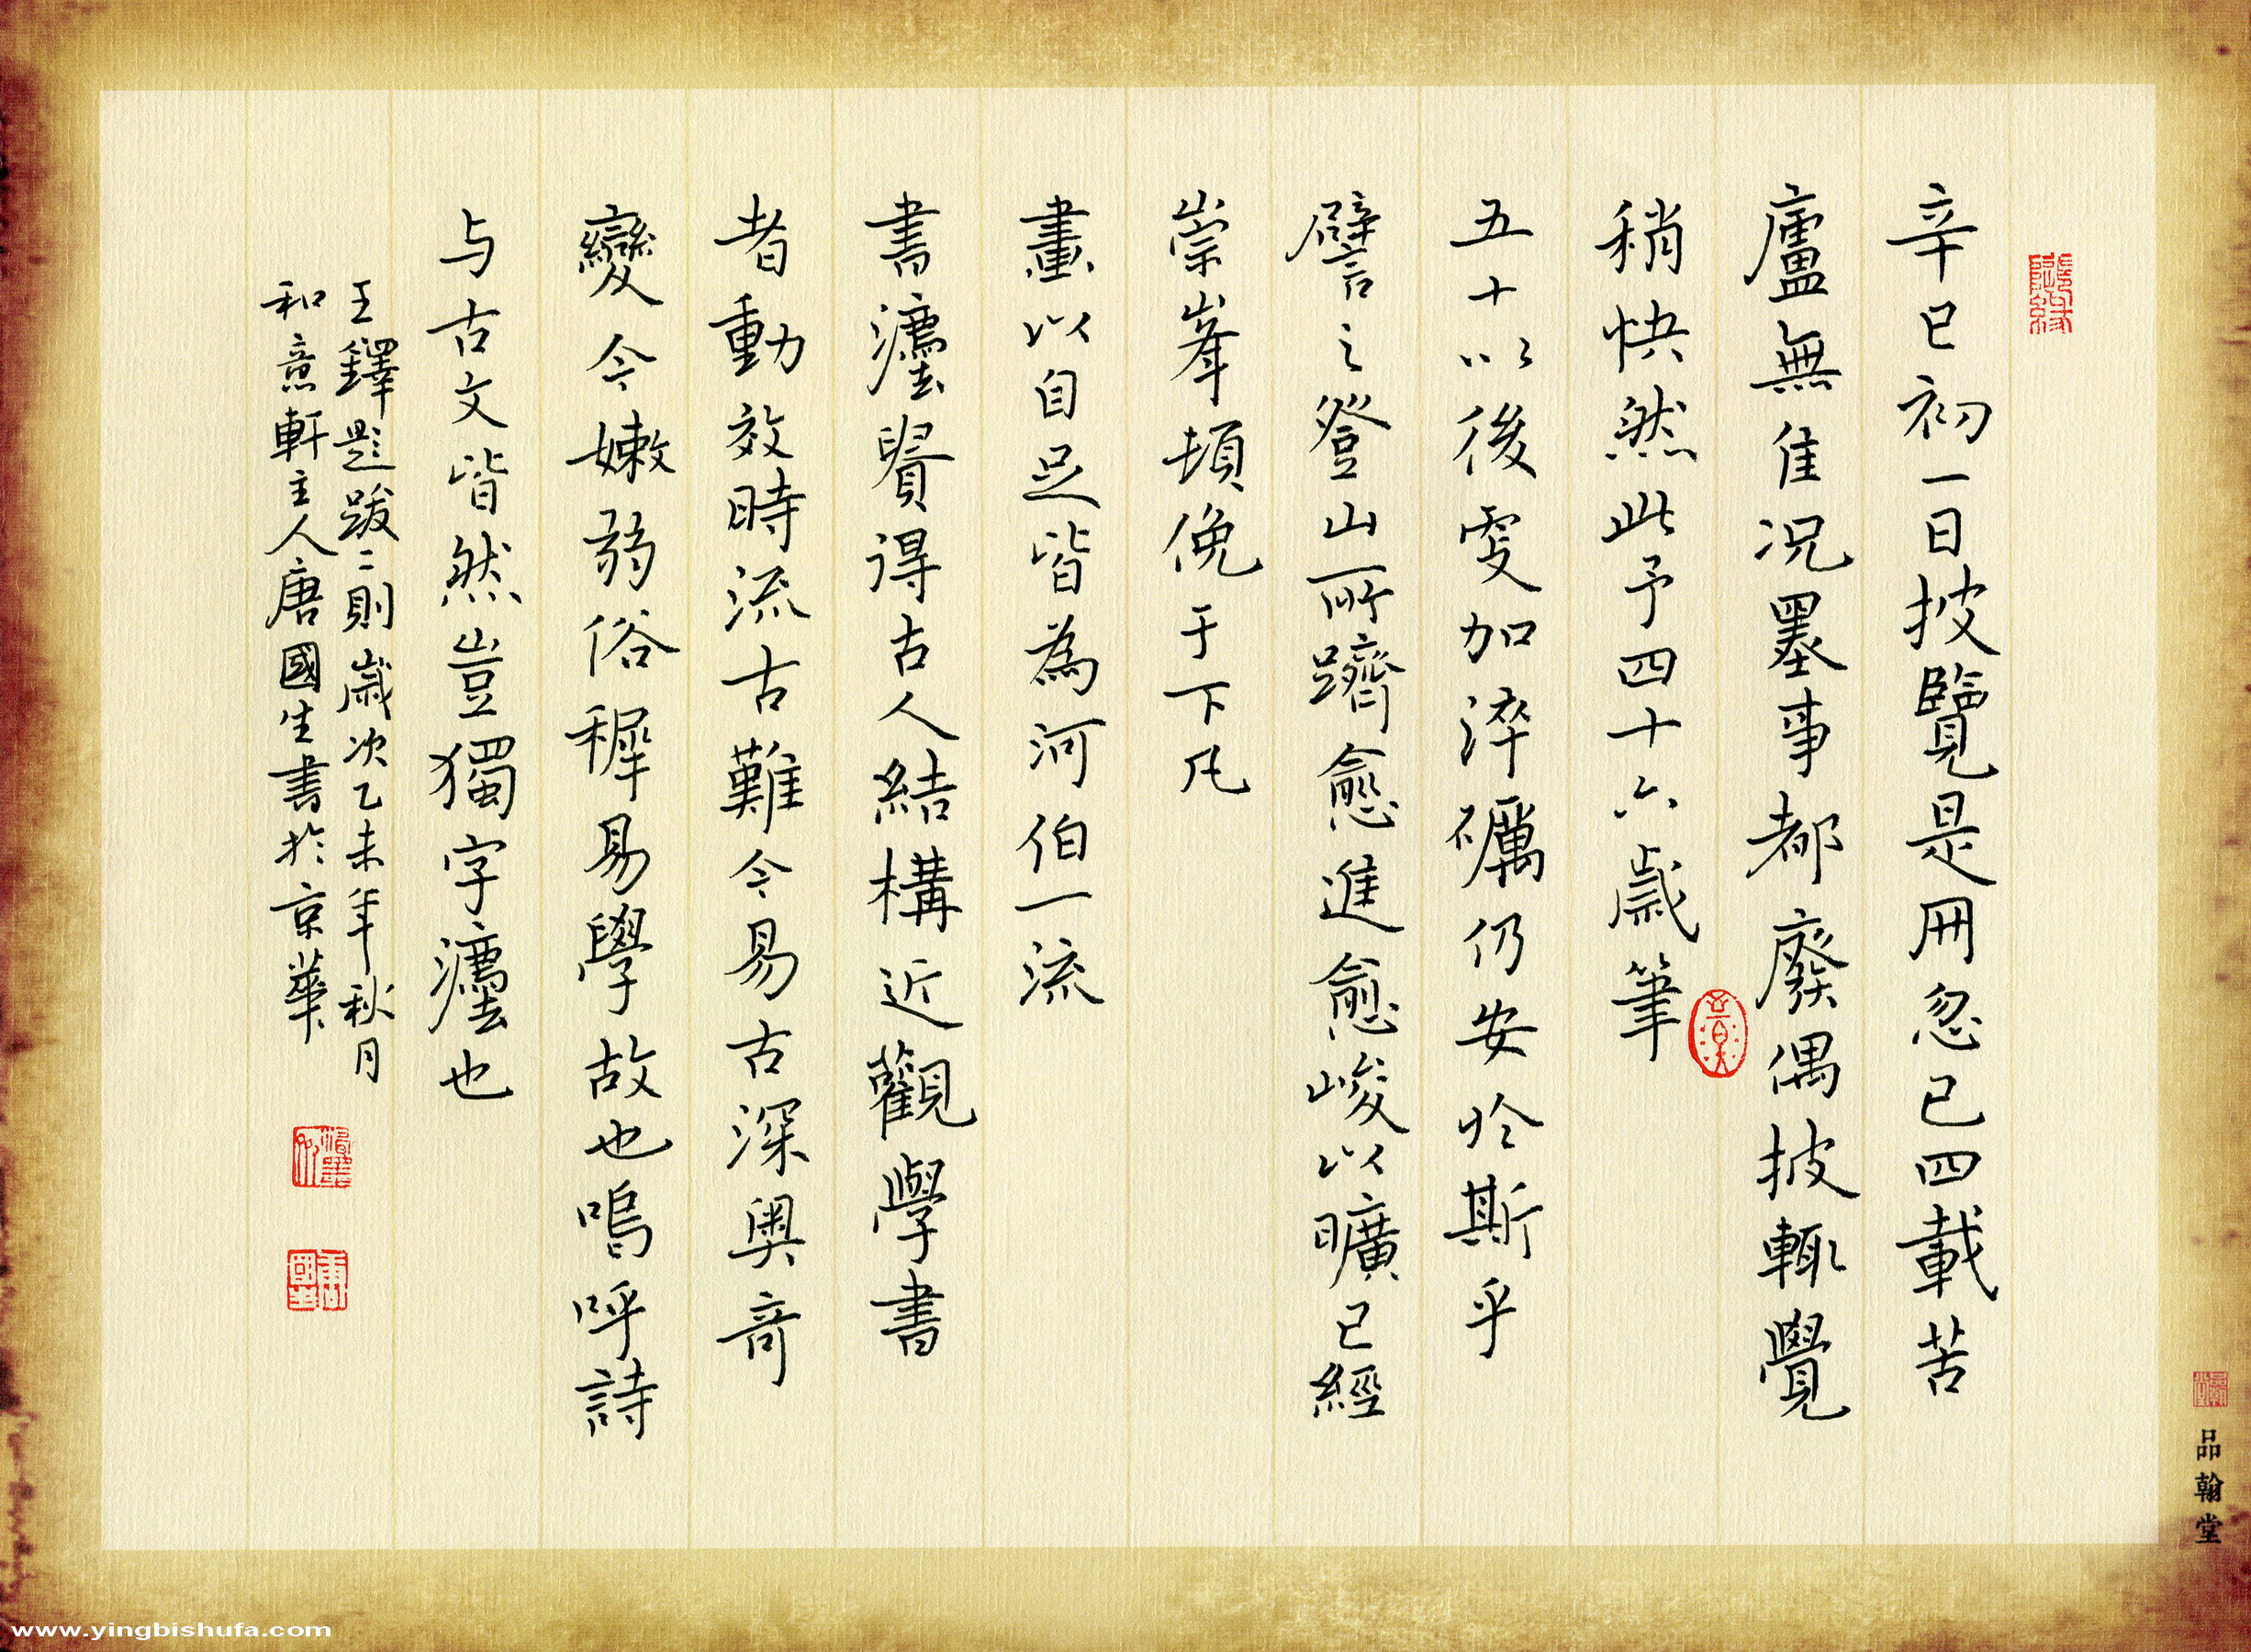 辛巳初一日披覽是用忽已四載苦
廬無佳况墨事都廢偶披輒覺
稍快然此予四十六歲筆
五十以後更加淬礪仍安於斯乎
譬之登山所躋愈進愈峻以曠已經
崇峯頓俛于下凡
畫以自足皆為河伯一流
書灋貴得古人結構近觀學書
者動效時流古難今易古深奧奇
變今嫩弱俗穉易學故也嗚呼詩
与古文皆然豈獨字灋也
王鐸題跋二則歲次乙未年秋月
和意軒主人唐國生書於京華
品翰堂
www.yingbishufa.com